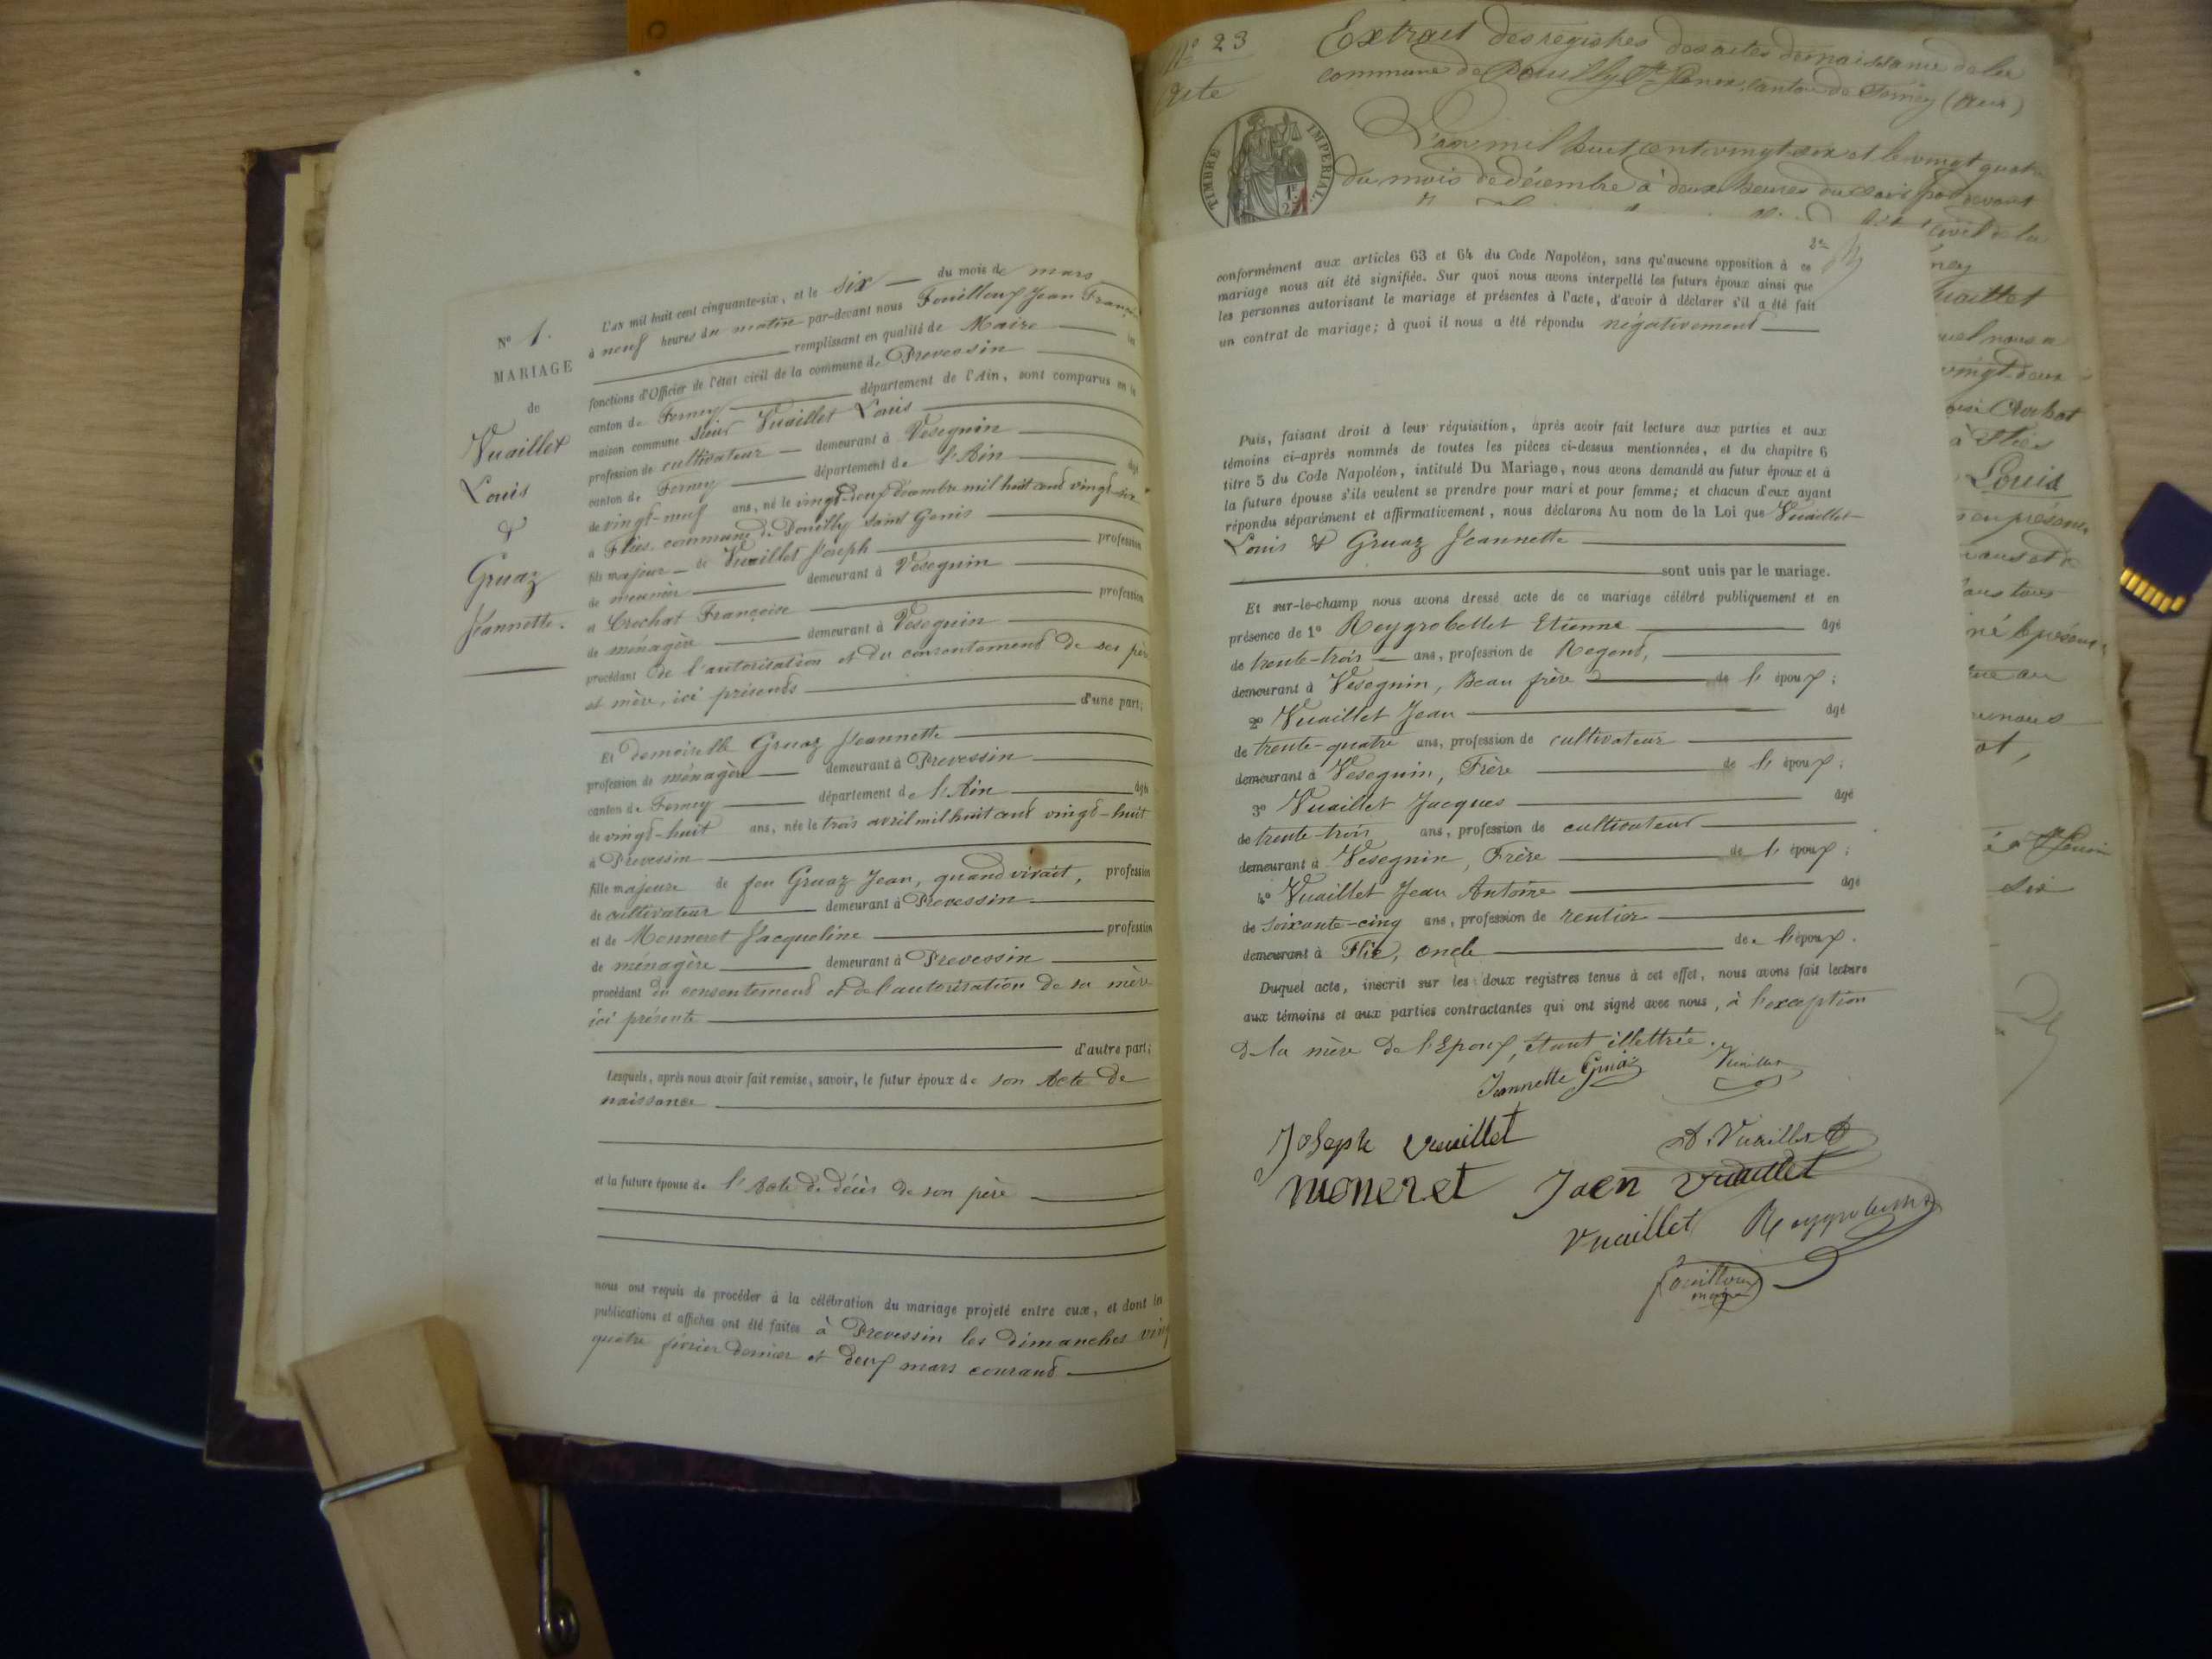 N° 1.
MARIAGE
de
Vuaillet
Louis
&
Gruaz
Jeannette.
L'AN mil huit cent cinquante-six, et le six du mois de mars
à neuf heures du matin par-devant nous Fouilloux Jean François
remplissant en qualité de Maire les
fonctions d'Officier de l'état civil de la commune de Prevessin
canton de Ferney département de l'Ain, sont comparus en la
maison commune sieur Vuaillet Louis
profession de cultivateur demeurant à Vesegnin
canton de Ferney département de l'Ain âgé
de vingt-neuf ans, né le vingt-deux décembre mil huit cent vingt-six
à Flies, commune de Pouilly saint Genis
fils majeur de Vuaillet Joseph profession
de meunier demeurant à Vesegnin
et Crochat Françoise profession
de ménagère demeurant à Vesegnin
procédant de l'autorisation et du consentement de ses père
et mère, ici présents
d'une part;
Et demoiselle Gruaz Jeannette
profession de ménagère demeurant à Prevessin
canton de Ferney département de l'Ain âgée
de vingt-huit ans, née le trois avril mil huit cent vingt-huit
à Prevessin
fille majeure de feu Gruaz Jean, quand vivait, profession
de cultivateur demeurant à Prevessin
et de Monneret Jacqueline profession
de ménagère demeurant à Prevessin
procédant du consentement et de l'autorisation de sa mère
ici présente
d'autre part;
Lesquels, après nous avoir fait remise, savoir, le futur époux de son Acte de
naissance
et la future épouse de l'Acte de décès de son père
nous ont requis de procéder à la célébration du mariage projeté entre eux, et dont les
publications et affiches ont été faites à Prevessin les dimanches vingt
quatre février dernier et deux mars courant
N° 23
Extrait des registres des actes de naissance de la
commune de Pouilly St Genix, canton de Ferney (Ain)
TIMBRE IMPERIAL
L'an mil huit cent vingt six et le vingt quatre
du mois de décembre à deux heures du soir par devant
conformément aux articles 63 et 64 du Code Napoléon, sans qu'aucune opposition à ce
mariage nous ait été signifiée. Sur quoi nous avons interpellé les futurs époux ainsi que
les personnes autorisant le mariage et présentes à l'acte, d'avoir à déclarer s'il a été fait
un contrat de mariage; à quoi il nous a été répondu négativement
Puis, faisant droit à leur réquisition, après avoir fait lecture aux parties et aux
témoins ci-après nommés de toutes les pièces ci-dessus mentionnées, et du chapitre 6
titre 5 du Code Napoléon, intitulé Du Mariage, nous avons demandé au futur époux et à
la future épouse s'ils veulent se prendre pour mari et pour femme; et chacun d'eux ayant
répondu séparément et affirmativement, nous déclarons Au nom de la Loi que Vuaillet
Louis & Gruaz Jeannette
sont unis par le mariage.
Et sur-le-champ nous avons dressé acte de ce mariage célébré publiquement et en
présence de 1° Reygrobellet Etienne âgé
de trente-trois ans, profession de Regent,
demeurant à Vesegnin, Beau frère de l'époux;
2° Vuaillet Jean âgé
de trente-quatre ans, profession de cultivateur
demeurant à Vesegnin, Frère de l'époux;
3° Vuaillet Jacques âgé
de trente-trois ans, profession de cultivateur
demeurant à Vesegnin, Frère de l'époux;
4° Vuaillet Jean Antoine âgé
de soixante-cinq ans, profession de rentier
demeurant à Flie, oncle de l'époux.
Duquel acte, inscrit sur les deux registres tenus à cet effet, nous avons fait lecture
aux témoins et aux parties contractantes qui ont signé avec nous, à l'exception
de la mère de l'Epoux, étant illettrée.
Jeannette Gruaz Vuaillet
Joseph vuaillet A. Vuaillet
moneret Jaen vuaillet
Vuaillet
fouilloux
maire